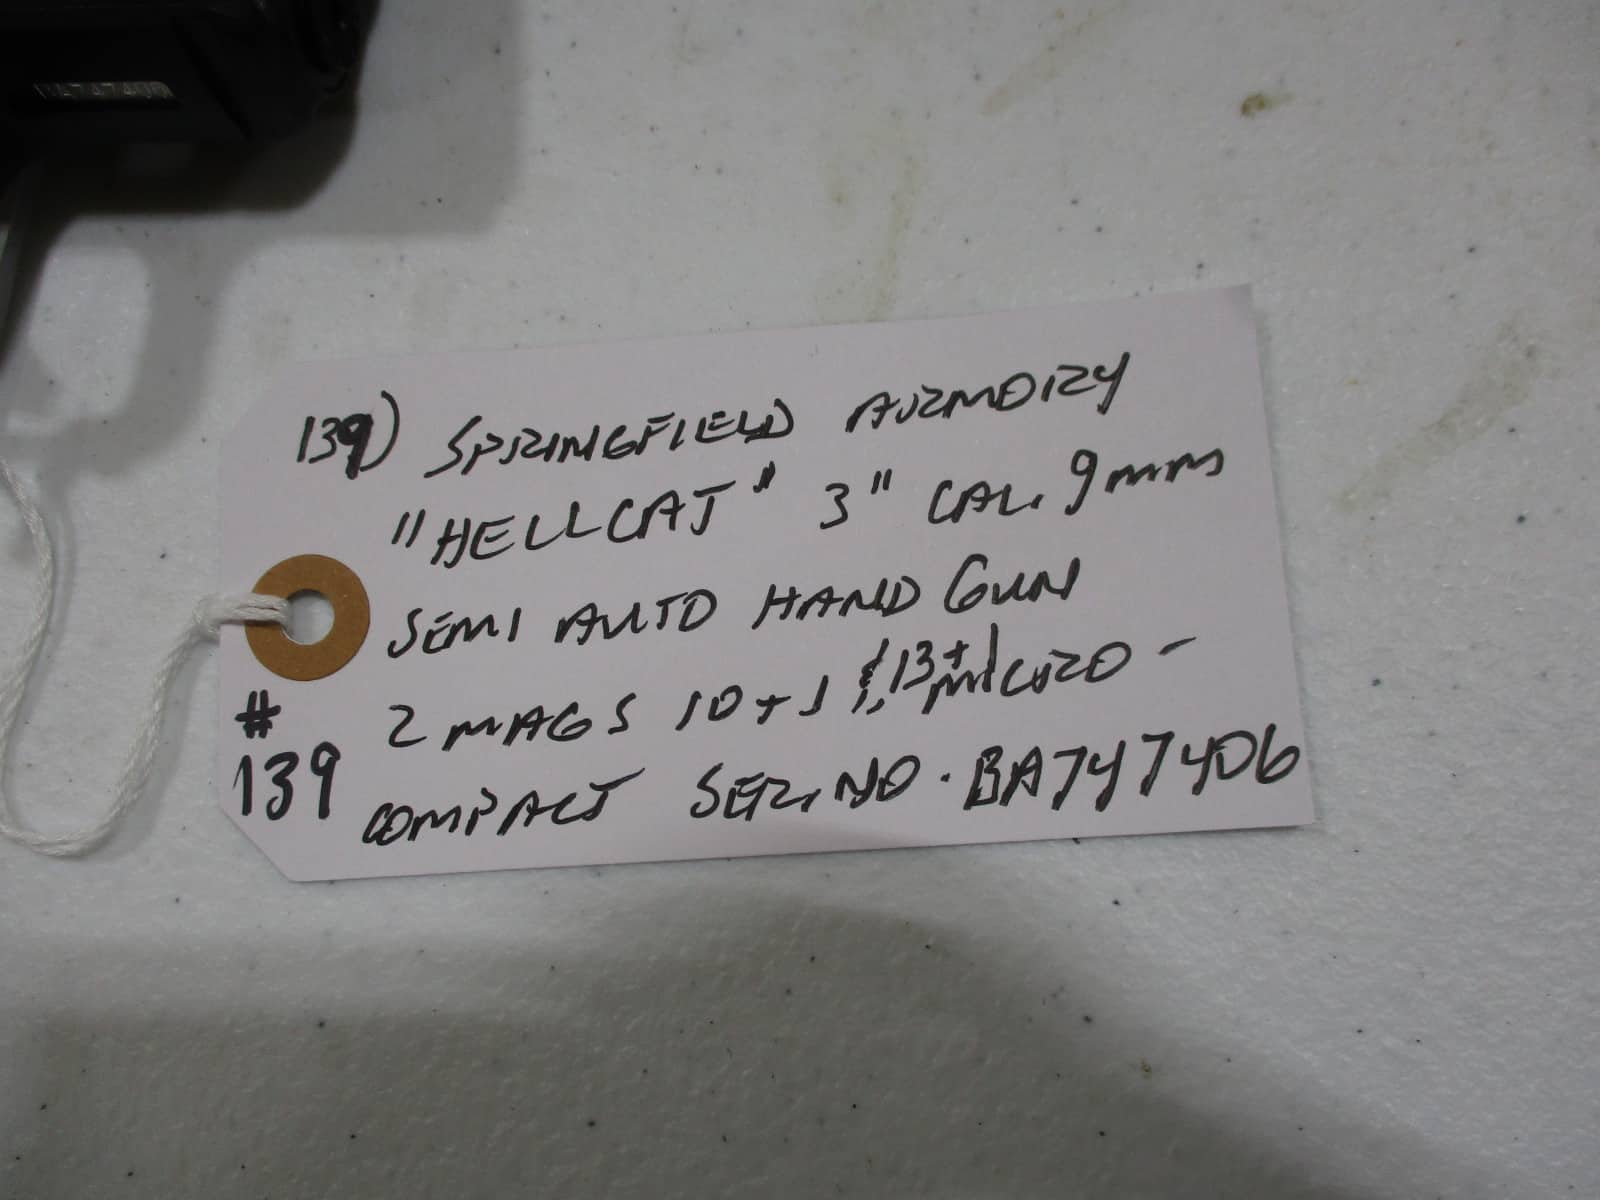 139) SPRINGFIELD ARMORY
"HELLCAT" 3" CAL. 9mm
SEMI AUTO HAND GUN
2 MAGS 10+1 & 13+1 MICRO-
COMPACT SER. NO. BA747406
#
139